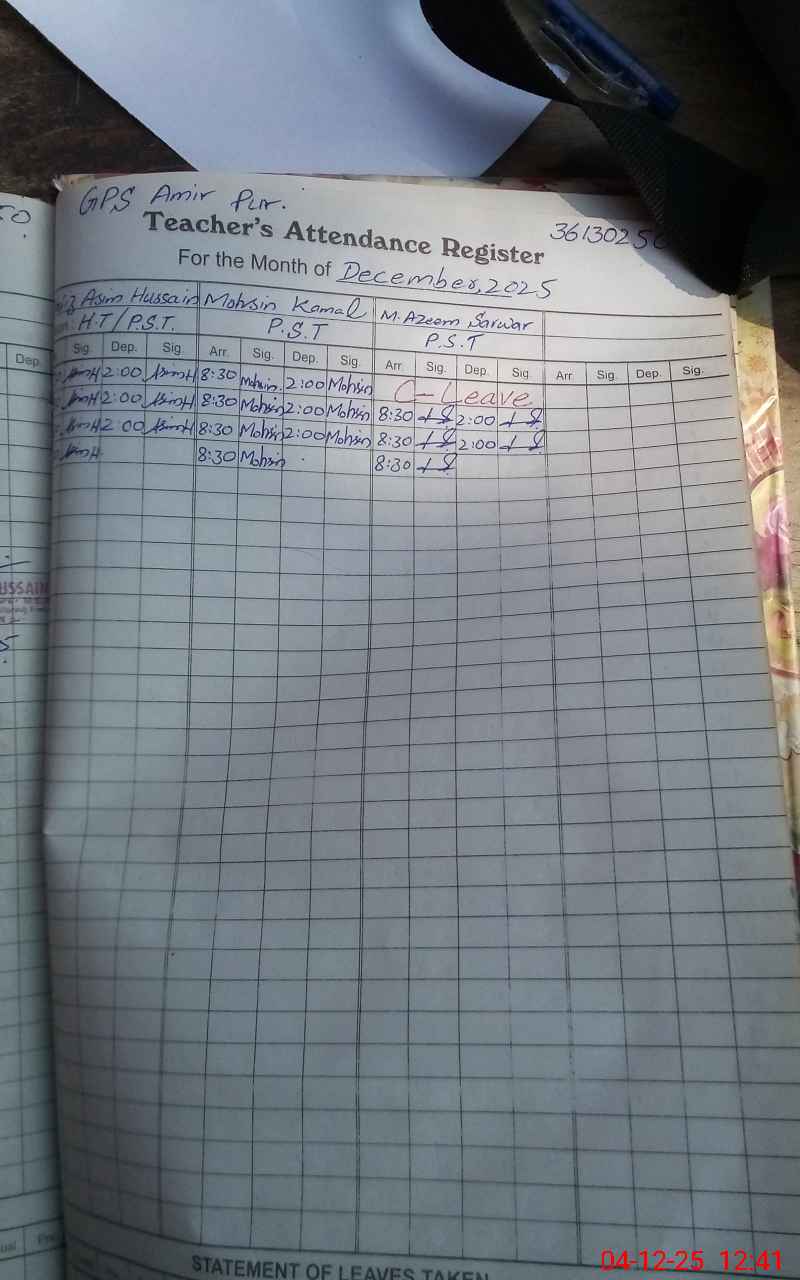 GPS Amir Pur.
Teacher's Attendance Register
3613025
For the Month of December, 2025
Asim Hussain Mohsin Kamal M. Azeem Sarwar
H.T/P.S.T. P.S.T P.S.T
Dep. Sig. Dep. Sig. Arr. Sig. Dep. Sig. Arr. Sig. Dep. Sig. Arr. Sig. Dep. Sig.
2:00 8:30 Mohsin 2:00 Mohsin C-Leave
2:00 8:30 Mohsin 2:00 Mohsin 8:30 2:00
2:00 8:30 Mohsin 2:00 Mohsin 8:30 2:00
8:30 Mohsin 8:30
USSAIN
STATEMENT OF LEAVES TAKEN
04-12-25 12:41